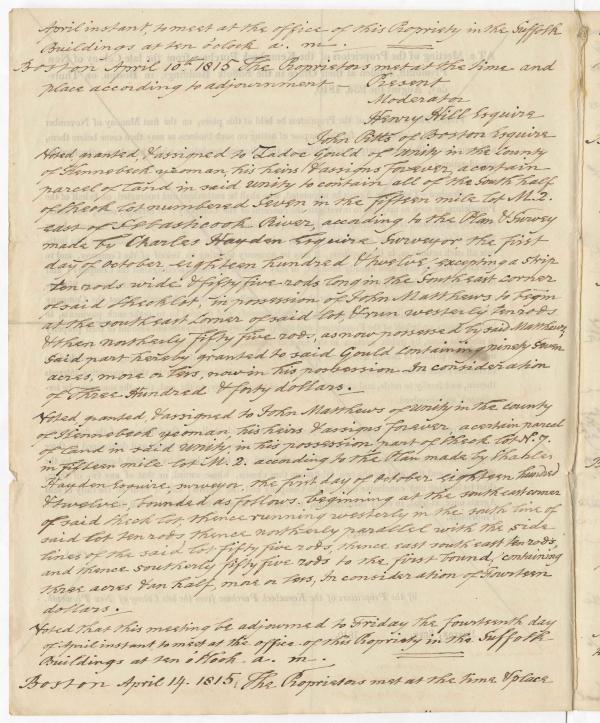 April instant, to meet at the office of this Propriety in the Suffolk
Buildings at ten o'clock a. m.
Boston April 10th 1815 The Proprietors met at the time and
place according to adjournment – Present
Moderator
Henry Hill Esquire
John Pitts of Boston Esquire
Voted granted, & assigned to Zadoc Gould of Unity in the County
of Kennebeck yeoman, his heirs & assigns forever, a certain
parcel of land in said Unity to contain all of the South half
of Check lot numbered Seven in the fifteen mile lot M. 2.
east of Sebasticook River, according to the Plan & Survey
made by Charles Hayden Esquire Surveyor the first
day of October eighteen hundred & twelve, excepting a strip
ten rods wide & fifty five rods long in the South east corner
of said Check lot, in possession of John Matthews to begin
at the south east corner of said lot & run westerly ten rods
& then northerly fifty five rods, as now possessed by said Matthews,
said part hereby granted to said Gould containing ninety seven
acres, more or less, now in his possession. In consideration
of Three Hundred & forty dollars.
Voted, granted, & assigned to John Matthews of Unity in the county
of Kennebeck yeoman, his heirs & assigns forever, a certain parcel
of land in said Unity, in his possession, part of Check lot N. 7.
in fifteen mile lot M. 2. according to the Plan made by Charles
Hayden Esquire surveyor, the first day of October eighteen hundred
& twelve, bounded as follows. beginning at the south east corner
of said Check lot, thence running westerly in the south line of
said lot ten rods thence northerly parallel with the side
lines of the said lot fifty five rods, thence east south east ten rods,
and thence southerly fifty five rods to the first bound, containing
three acres & an half more or less, In consideration of Fourteen
dollars.
Voted that this meeting be adjourned to Friday the fourteenth day
of April instant to meet at the office of this Propriety in the Suffolk
Buildings at ten o'Clock a. m.
Boston April 14. 1815. The Proprietors met at the time & place